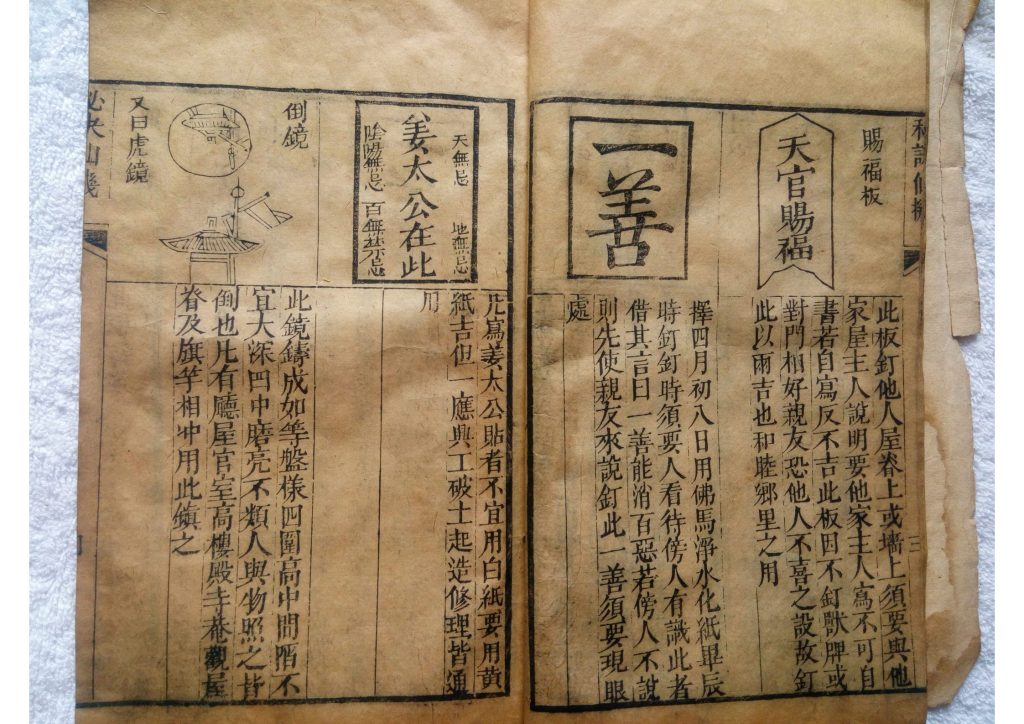 賜福板
天官賜福
此板釘他人屋脊上或墻上須要與他
家屋主人說明要他家主人寫不可自
書若自寫反不吉此板因不釘獸牌或
對門相好親友恐他人不喜之設故釘
此以兩吉也和睦鄉里之用
三
一善
擇四月初八日用佛馬淨水化紙畢辰
時釘釘時須要人看待傍人有識此者
借其言曰一善能消百惡若傍人不說
則先使親友來說釘此一善須要現眼
處
天無忌
地無忌
姜太公在此
陰陽無忌
百無禁忌
凡寫姜太公貼者不宜用白紙要用黃
紙吉但一應興工破土起造修理皆通
用
倒鏡
又曰虎鏡
此鏡鑄成如等盤樣四圍高中間陷不
宜大深凹中磨亮不類人與物照之皆
倒也凡有廳屋官室高樓殿寺菴觀屋
脊及旗竿相冲用此鎮之